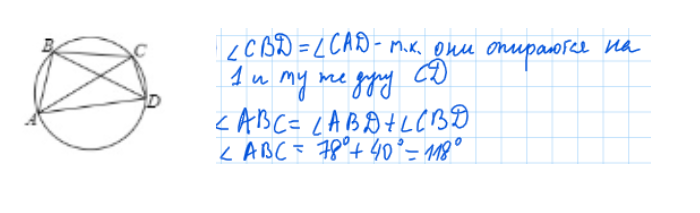 B
C
D
A
∠CBD = ∠CAD - т.к. они опираются на
1 и ту же дугу CD
∠ABC = ∠ABD + ∠CBD
∠ABC = 78° + 40° = 118°